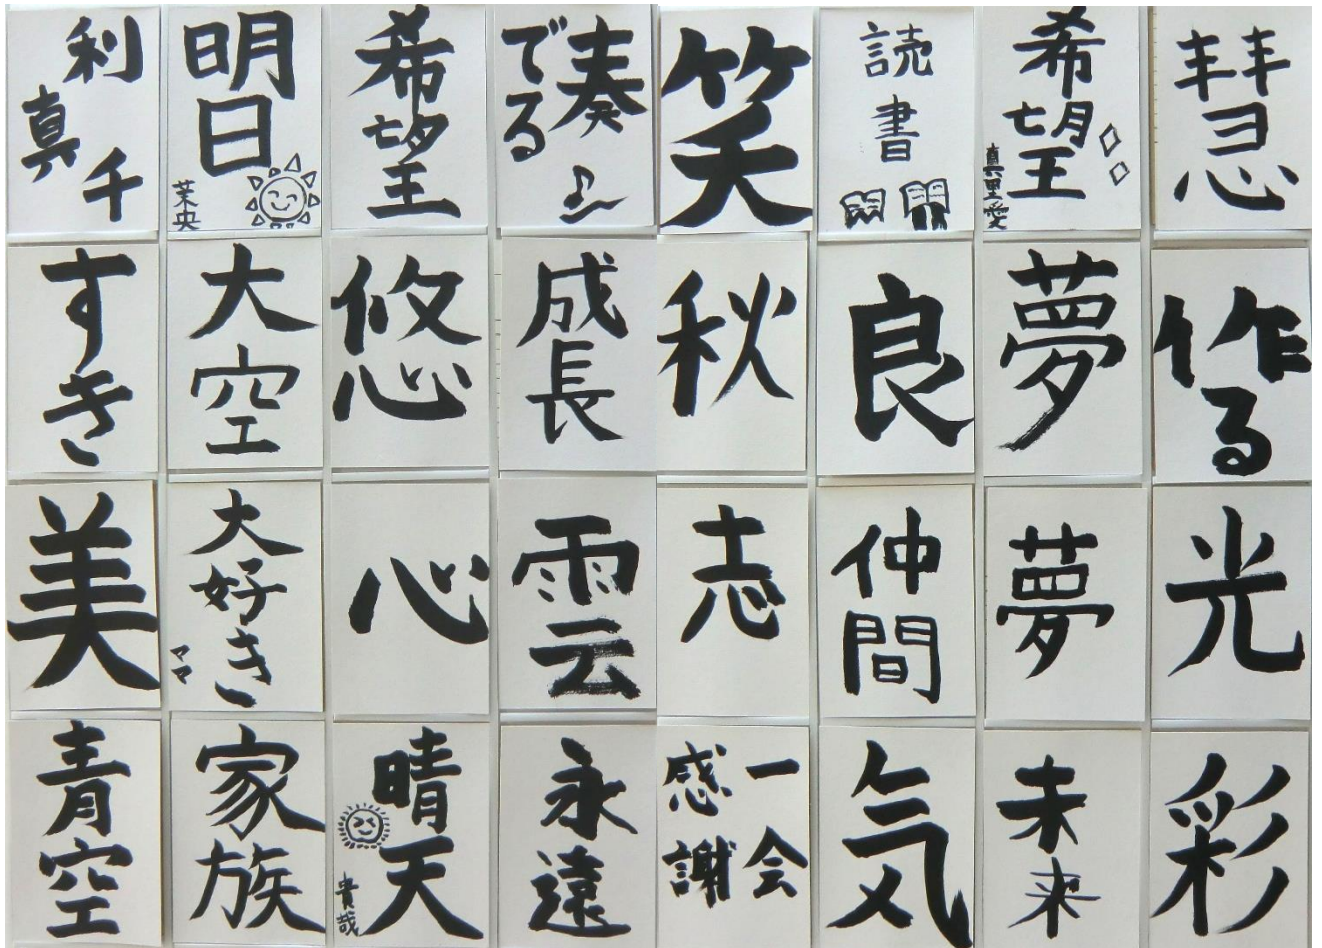 利
千
真
明日
茉央
希望
奏
でる
笑
読書
希望
真里愛
彗心
すき
大空
悠
成長
秋
良
夢
作る
美
大好き
ママ
心
雲
志
仲間
夢
光
青空
家族
晴天
貴哉
永遠
一会
感謝
気
未来
彩